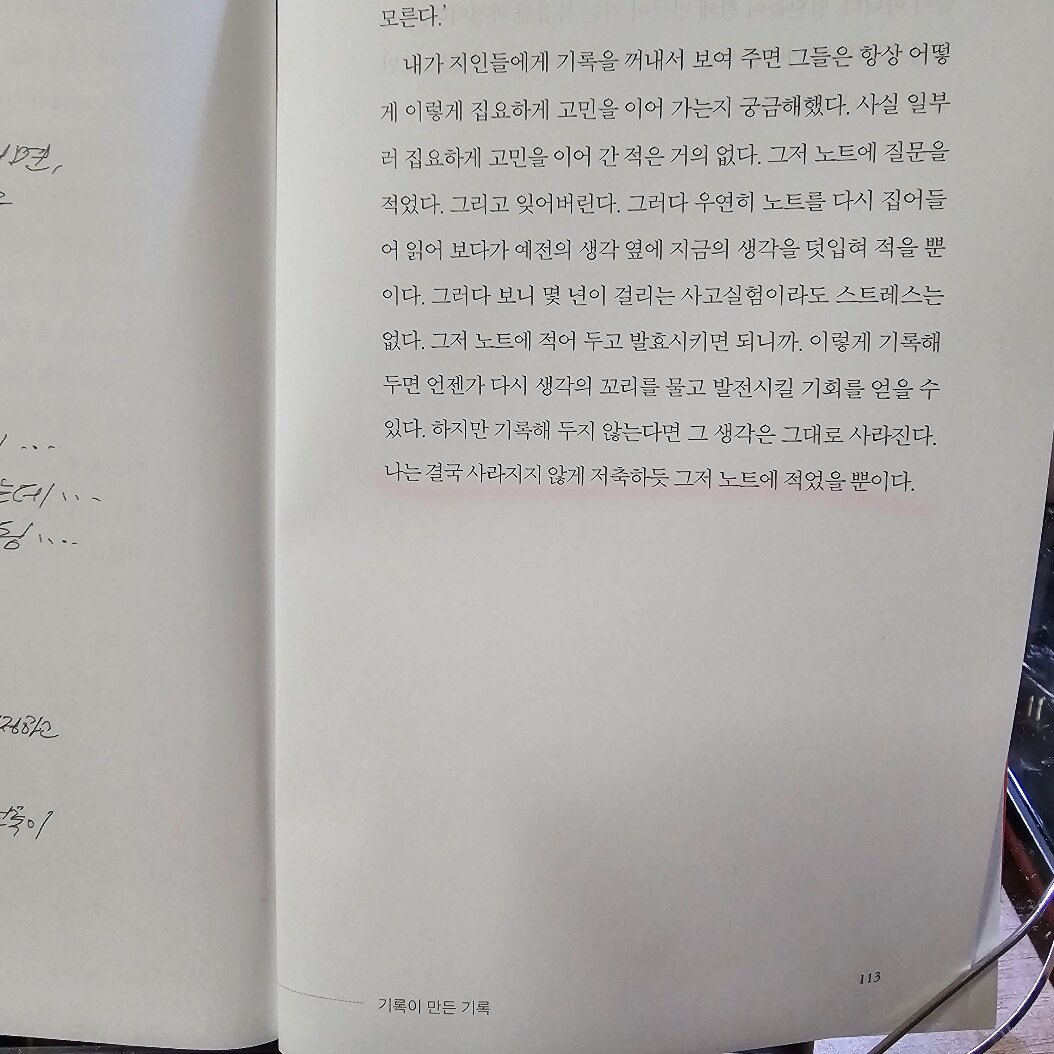 모른다.’
내가 지인들에게 기록을 꺼내서 보여 주면 그들은 항상 어떻
게 이렇게 집요하게 고민을 이어 가는지 궁금해했다. 사실 일부
러 집요하게 고민을 이어 간 적은 거의 없다. 그저 노트에 질문을
적었다. 그리고 잊어버린다. 그러다 우연히 노트를 다시 집어들
어 읽어 보다가 예전의 생각 옆에 지금의 생각을 덧입혀 적을 뿐
이다. 그러다 보니 몇 년이 걸리는 사고실험이라도 스트레스는
없다. 그저 노트에 적어 두고 발효시키면 되니까. 이렇게 기록해
두면 언젠가 다시 생각의 꼬리를 물고 발전시킬 기회를 얻을 수
있다. 하지만 기록해 두지 않는다면 그 생각은 그대로 사라진다.
나는 결국 사라지지 않게 저축하듯 그저 노트에 적었을 뿐이다.
113
기록이 만든 기록